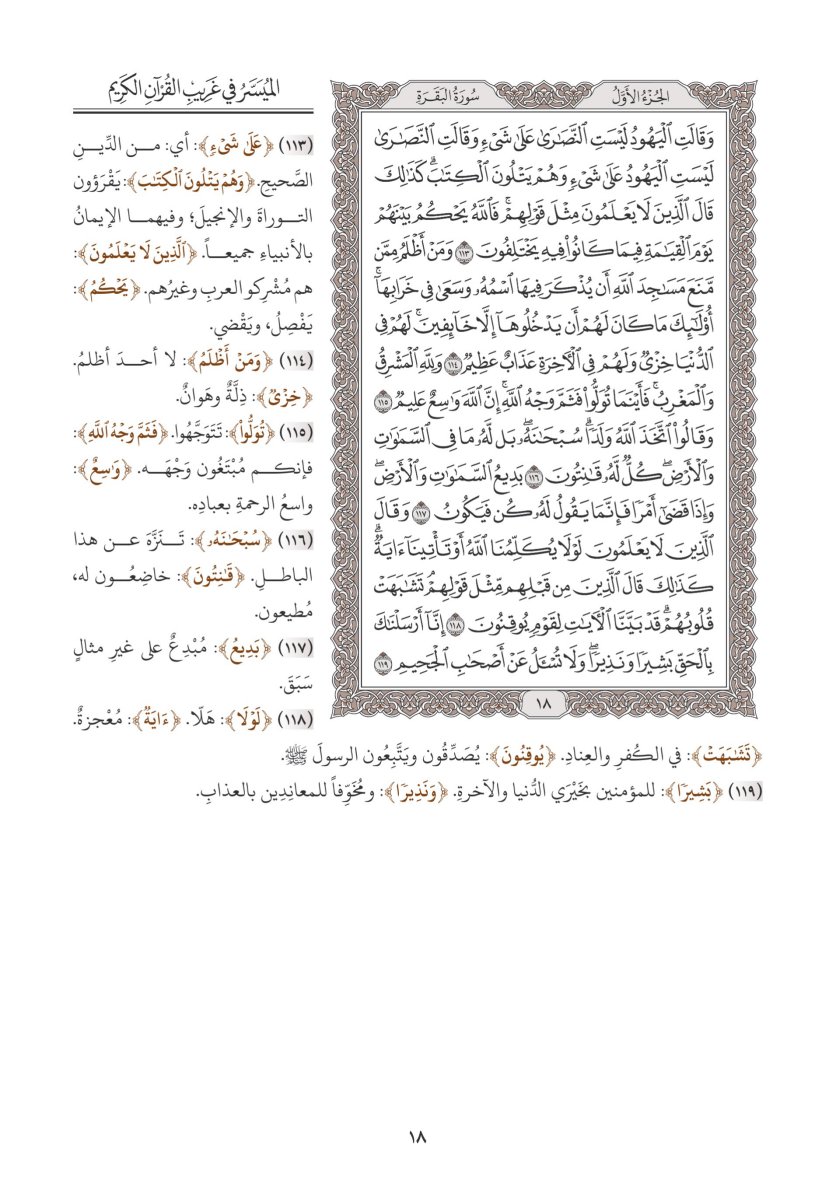 الجُزْءُ الأَوَّلُ
سُورَةُ البَقَرَةِ
وَقَالَتِ ٱلۡيَهُودُ لَيۡسَتِ ٱلنَّصَٰرَىٰ عَلَىٰ شَيۡءٖ وَقَالَتِ ٱلنَّصَٰرَىٰ
لَيۡسَتِ ٱلۡيَهُودُ عَلَىٰ شَيۡءٖ وَهُمۡ يَتۡلُونَ ٱلۡكِتَٰبَۗ كَذَٰلِكَ
قَالَ ٱلَّذِينَ لَا يَعۡلَمُونَ مِثۡلَ قَوۡلِهِمۡۚ فَٱللَّهُ يَحۡكُمُ بَيۡنَهُمۡ
يَوۡمَ ٱلۡقِيَٰمَةِ فِيمَا كَانُواْ فِيهِ يَخۡتَلِفُونَ ١١٣ وَمَنۡ أَظۡلَمُ مِمَّن
مَّنَعَ مَسَٰجِدَ ٱللَّهِ أَن يُذۡكَرَ فِيهَا ٱسۡمُهُۥ وَسَعَىٰ فِي خَرَابِهَآۚ
أُوْلَٰٓئِكَ مَا كَانَ لَهُمۡ أَن يَدۡخُلُوهَآ إِلَّا خَآئِفِينَۚ لَهُمۡ فِي
ٱلدُّنۡيَا خِزۡيٞ وَلَهُمۡ فِي ٱلۡأٓخِرَةِ عَذَابٌ عَظِيمٞ ١١٤ وَلِلَّهِ ٱلۡمَشۡرِقُ
وَٱلۡمَغۡرِبُۚ فَأَيۡنَمَا تُوَلُّواْ فَثَمَّ وَجۡهُ ٱللَّهِۚ إِنَّ ٱللَّهَ وَٰسِعٌ عَلِيمٞ ١١٥
وَقَالُواْ ٱتَّخَذَ ٱللَّهُ وَلَدٗاۗ سُبۡحَٰنَهُۥۖ بَل لَّهُۥ مَا فِي ٱلسَّمَٰوَٰتِ
وَٱلۡأَرۡضِۖ كُلّٞ لَّهُۥ قَٰنِتُونَ ١١٦ بَدِيعُ ٱلسَّمَٰوَٰتِ وَٱلۡأَرۡضِۖ
وَإِذَا قَضَىٰٓ أَمۡرٗا فَإِنَّمَا يَقُولُ لَهُۥ كُن فَيَكُونُ ١١٧ وَقَالَ
ٱلَّذِينَ لَا يَعۡلَمُونَ لَوۡلَا يُكَلِّمُنَا ٱللَّهُ أَوۡ تَأۡتِينَآ ءَايَةٞۗ
كَذَٰلِكَ قَالَ ٱلَّذِينَ مِن قَبۡلِهِم مِّثۡلَ قَوۡلِهِمۡۘ تَشَٰبَهَتۡ
قُلُوبُهُمۡۗ قَدۡ بَيَّنَّا ٱلۡأٓيَٰتِ لِقَوۡمٖ يُوقِنُونَ ١١٨ إِنَّآ أَرۡسَلۡنَٰكَ
بِٱلۡحَقِّ بَشِيرٗا وَنَذِيرٗاۖ وَلَا تُسۡـَٔلُ عَنۡ أَصۡحَٰبِ ٱلۡجَحِيمِ ١١٩
١٨
المُيَسَّرُ في غَرِيبِ القُرْآنِ الكَرِيمِ
(١١٣) ﴿عَلَىٰ شَيۡءٖ﴾: أي: مـن الدِّيـنِ
الصَّحيحِ. ﴿وَهُمۡ يَتۡلُونَ ٱلۡكِتَٰبَ﴾: يَقْرَؤون
التـوراةَ والإنجيلَ؛ وفيهمـا الإيمانُ
بالأنبياءِ جميعـاً. ﴿ٱلَّذِينَ لَا يَعۡلَمُونَ﴾:
هم مُشْرِكو العربِ وغيرُهم. ﴿يَحۡكُمُ﴾:
يَفْصِلُ، ويَقْضي.
(١١٤) ﴿وَمَنۡ أَظۡلَمُ﴾: لا أحـدَ أظلمُ.
﴿خِزۡيٞ﴾: ذِلَّةٌ وهَوانٌ.
(١١٥) ﴿تُوَلُّواْ﴾: تَتَوَجَّهُوا. ﴿فَثَمَّ وَجۡهُ ٱللَّهِ﴾:
فإنكـم مُبْتَغُون وَجْهَـه. ﴿وَٰسِعٌ﴾:
واسعُ الرحمةِ بعبادِه.
(١١٦) ﴿سُبۡحَٰنَهُۥ﴾: تَـنَزَّهَ عـن هذا
الباطـلِ. ﴿قَٰنِتُونَ﴾: خاضِعُـون له،
مُطيعون.
(١١٧) ﴿بَدِيعُ﴾: مُبْدِعٌ على غيرِ مثالٍ
سَبَقَ.
(١١٨) ﴿لَوۡلَا﴾: هَلَّا. ﴿ءَايَةٞ﴾: مُعْجزةٌ.
﴿تَشَٰبَهَتۡ﴾: في الكُفرِ والعِنادِ. ﴿يُوقِنُونَ﴾: يُصَدِّقُون ويَتَّبِعُون الرسولَ ﷺ.
(١١٩) ﴿بَشِيرٗا﴾: للمؤمنين بخَيْرَيِ الدُّنيا والآخرةِ. ﴿وَنَذِيرٗا﴾: ومُخَوِّفاً للمعانِدِين بالعذابِ.
١٨